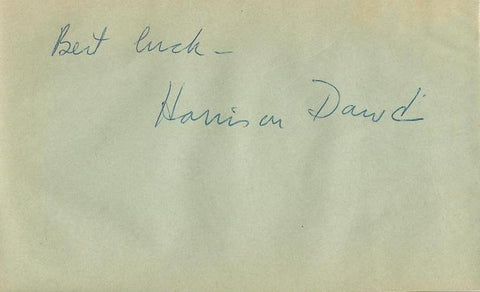 Best luck -
Harrison Dowd